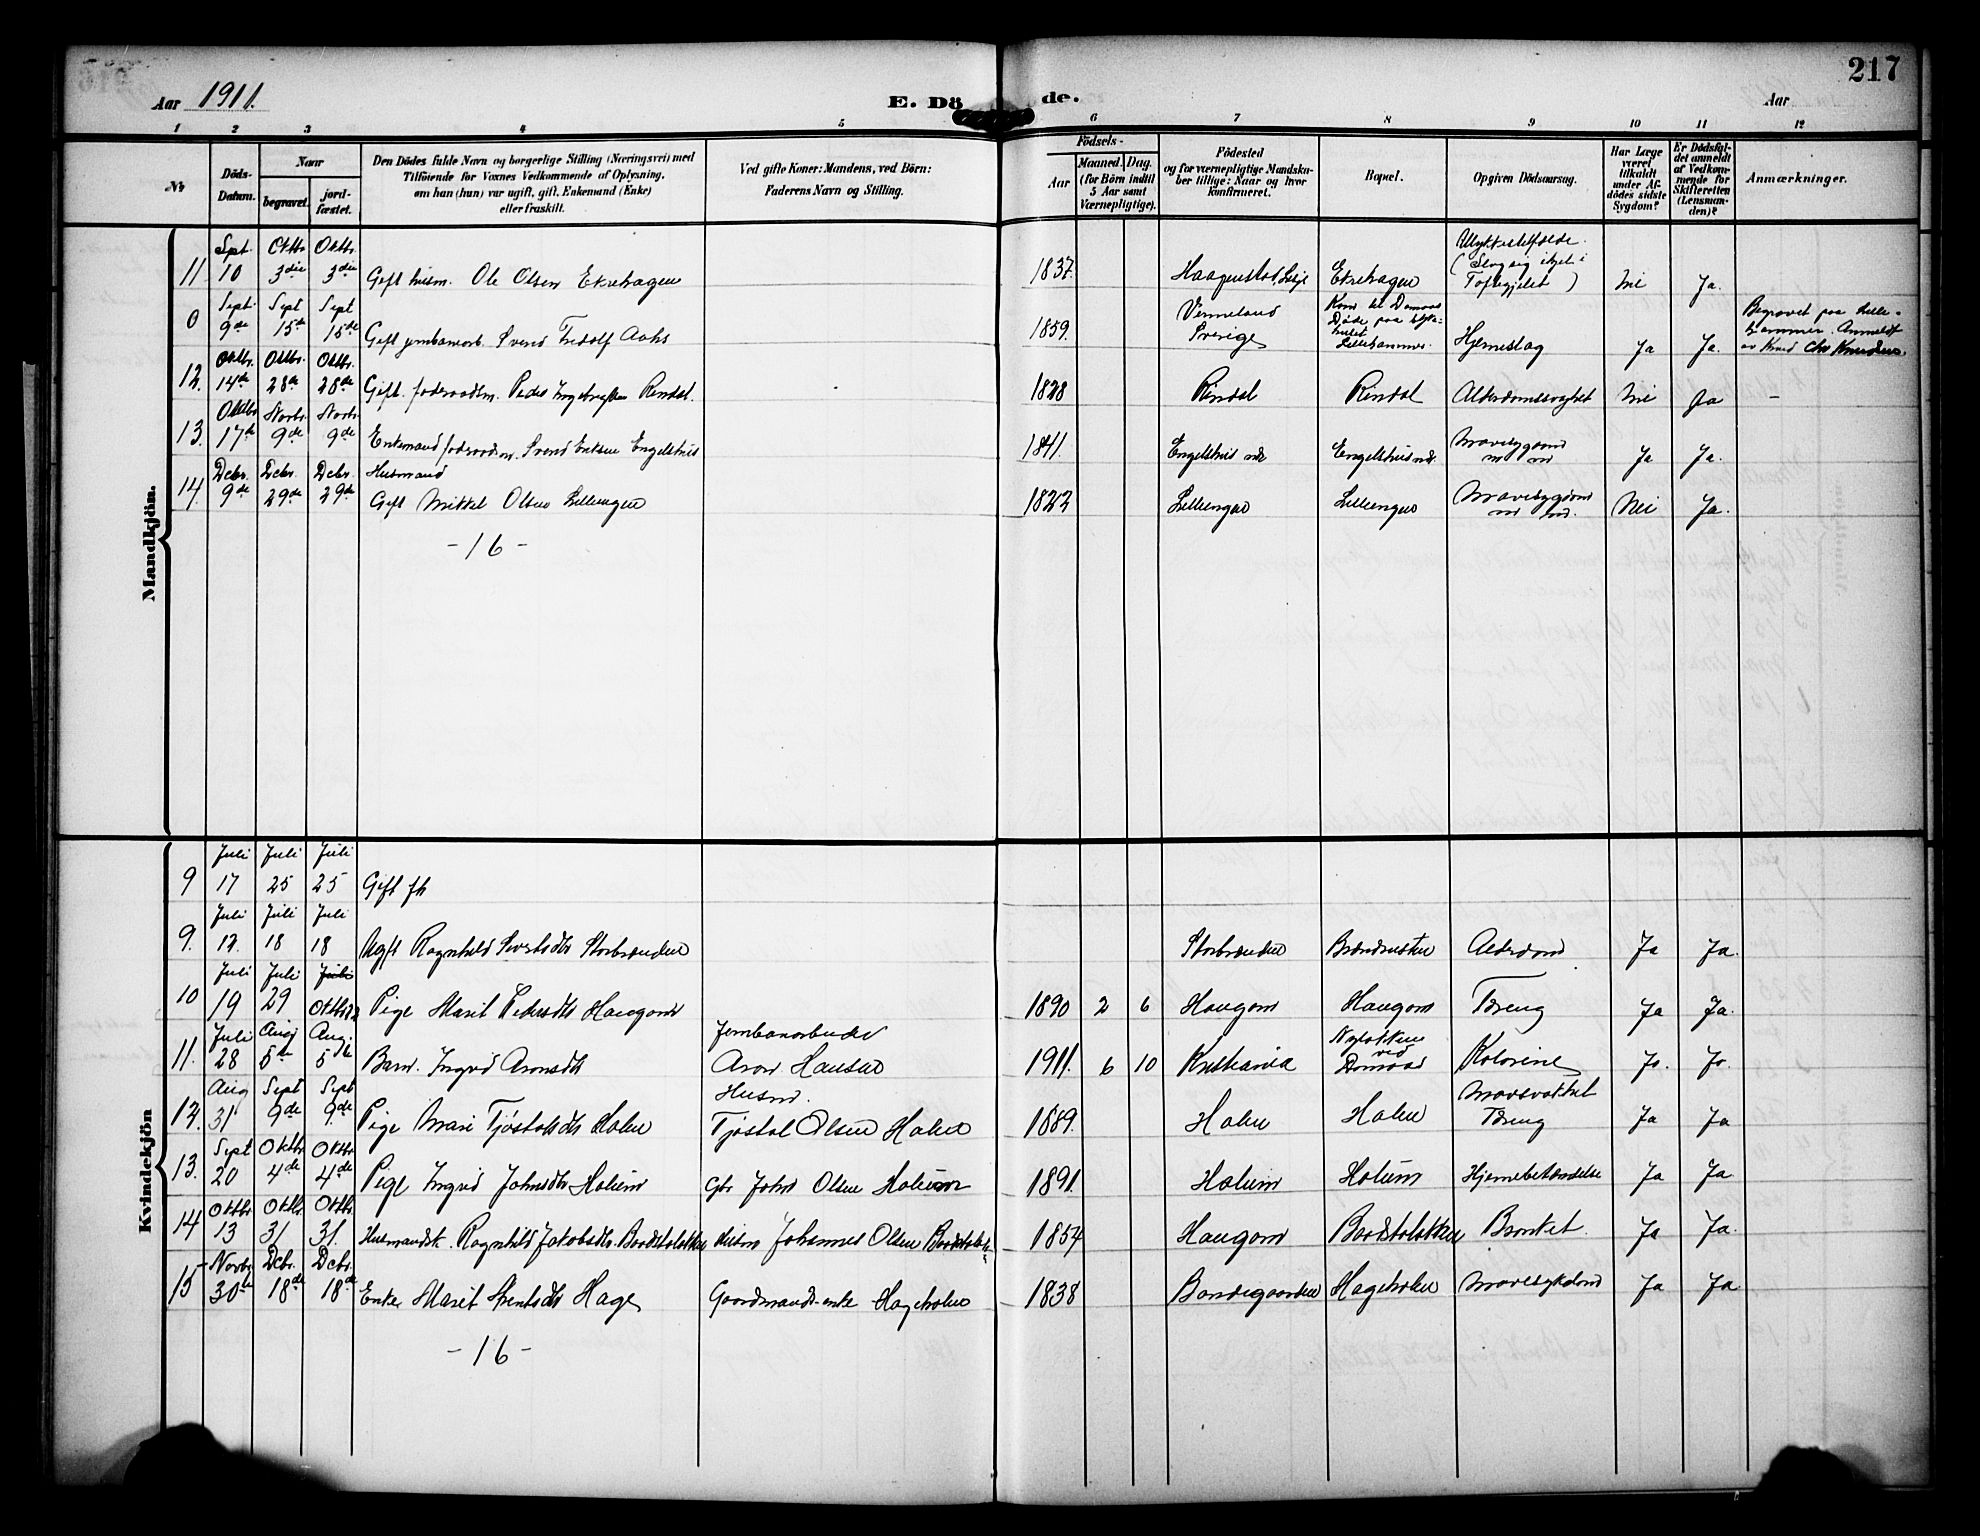 217
Aar 1911.
E. Döde.
Aar
1 2 3 4 5 6 7 8 9 10 11 12
No
Döds-
Datum.
Naar
begravet.
jord-
fæstet.
Den Dödes fulde Navn og borgerlige Stilling (Næringsvei) med
Tilföiende for Voxnes Vedkommende af Oplysning,
om han (hun) var ugift, gift, Enkemand (Enke)
eller fraskilt.
Ved gifte Koner: Mandens, ved Börn:
Faderens Navn og Stilling.
Födsels-
Aar
Maaned.
Dag.
(for Börn indtil
5 Aar samt
Værnepligtige).
Födested
og for værnepligtige Mandska-
ber tillige: Naar og hvor
konfirmeret.
Bopæl.
Opgiven Dödsaarsag.
Har Læge
været
tilkaldt
under Af-
dödes sidste
Sygdom?
Er Dödsfal-
det anmeldt
af Vedkom-
mende for
Skifteretten
(Lensman-
den)?
Anmærkninger.
Mandkjön.
11 Spt. 10 Oktbr 3die Oktbr 3die Gift husm. Ole Olsen Ekrehagen 1837. Ekrehagen Ulykkestilfælde. (Slog sig ihjel i ) Nei Ja.
0 Sept. 9de Sept 15de Sept 15de Gift jernbanearb. Svend Fredolf 1859. Vermeland Sverige Kom til Domaas Døde paa Lillehammer. Hjerneslag Ja Ja. Begravet paa Lille-
hammer. Anmeldt
av Knud Chr Knudsen.
12. Oktbr. 14de Oktbr. 28de Oktbr. 28de Gift. foderaadsm. Peder Ingebrigtsen Rindal. 1828 Rindal Rindal Alderdomssvaghet Nei Ja -
13. Oktbr 17de Novbr. 9de Novbr. 9de Enkemand foderaadsm. Svend Eriksen Engelshus 1841. Engelshus Engelshus Mavesygdom Ja Ja.
14. Debr. 9de Debr. 29de Debr. 29de Husmand
Gift Mikkel Olsen Lillengen 1823 Lillengen Lillengen Mavesygdom Nei Ja.
-16-
Kvindekjön
9 Juli 17 Juli 25 Juli 25 Gift
9. Juli 12. Juli 18 Juli 18 Ugift Ragnhild Storbrænden Storbrænden Alderdom Ja Ja.
10 Juli 19 Juli 29 Juli Oktbr Pige Marit Pedersdtr Haugom 1890 2 6 Haugom Haugom Tæring Ja Ja.
11. Juli 28 Aug 5te Aug. 5te Barn. Ingrid Aronsdtr Jernbanearbeider
Aron Hansen 1911. 6 10 Kristiania ved Domaas Kolerine Ja. Ja.
12. Aug 31 Sept 9de Sept 9de Pige Mari Tjøstolsdtr Holen Husm.
Tjøstol Olsen Holen 1889. Holen Holen Tæring Ja Ja
13. Sept 20 Oktbr 4de Oktbr 4de Pige Ingrid Johnsdtr Holum Gbr John Olsen Holum 1891. Holum Holum Hjernebetændelse Ja Ja
14 Oktbr 13 Oktbr. 31 Oktbr 31. Husmandsk. Ragnhild Jakobsdtr. Husm Johannes Olsen 1854 Haugom Ja Ja.
15 Novbr 30te Debr. 18de Debr. 18de Enke Marit Hage Gaardmands-enke Hageholen 1838 Bondegaarden Hageholen Mavesykdom Ja Ja
-16-